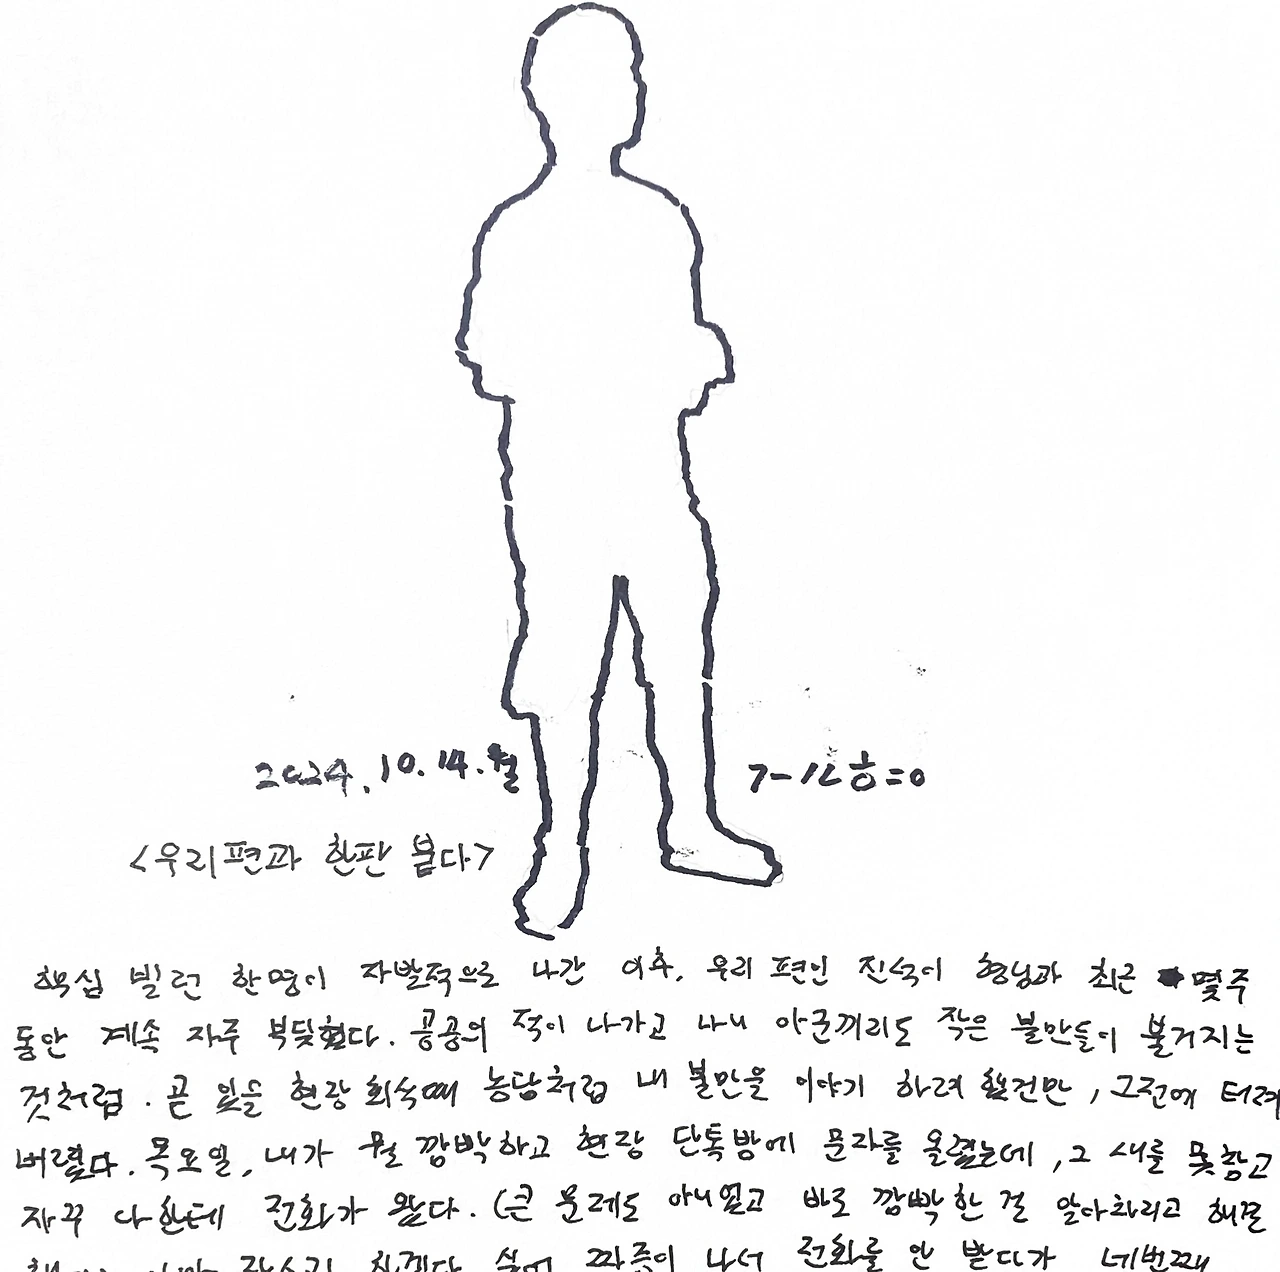 2024.10.14.월
7-12 흥=0
<우리편과 한판 붙다>
핵심 빌런 한명이 자발적으로 나간 이후, 우리 편인 진석이 형님과 최근 몇주
동안 계속 자주 부딪혔다. 공공의 적이 나가고 나니 아군끼리도 작은 불만들이 불거지는
것처럼. 곧 있을 현장 회식때 농담처럼 내 불만을 이야기 하려 했건만, 그전에 터져
버렸다. 목요일, 내가 뭘 깜박하고 현장 단톡방에 문자를 올렸는데, 그 새를 못참고
자꾸 나한테 전화가 왔다. (큰 문제도 아니였고 바로 깜박한 걸 알아차리고 해결
짜증이 나서 전화를 안 받다가 네번째